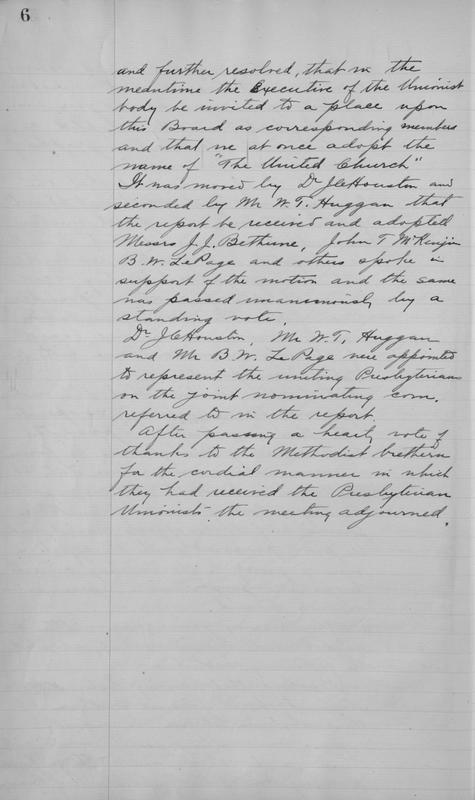 6
and further resolved, that in the
meantime the Executive of the Unionist
body be invited to a place upon
this Board as corresponding members
and that we at once adopt the
name of "The United Church"
It was moved by Dr J C Houston and
seconded by Mr W. T. Huggan that
the report be received and adopted
Messrs J. J. Bethune, John T McKenzie
B. W. LePage and others spoke in
support of the motion and the same
was passed unanimously by a
standing vote.
Dr J C Houston, Mr W. T. Huggan
and Mr B. W. LePage were appointed
to represent the uniting Presbyterians
on the joint nominating com.
referred to in the report
After passing a hearty vote of
thanks to the Methodist brethern
for the cordial manner in which
they had received the Presbyterian
Unionists the meeting adjourned.